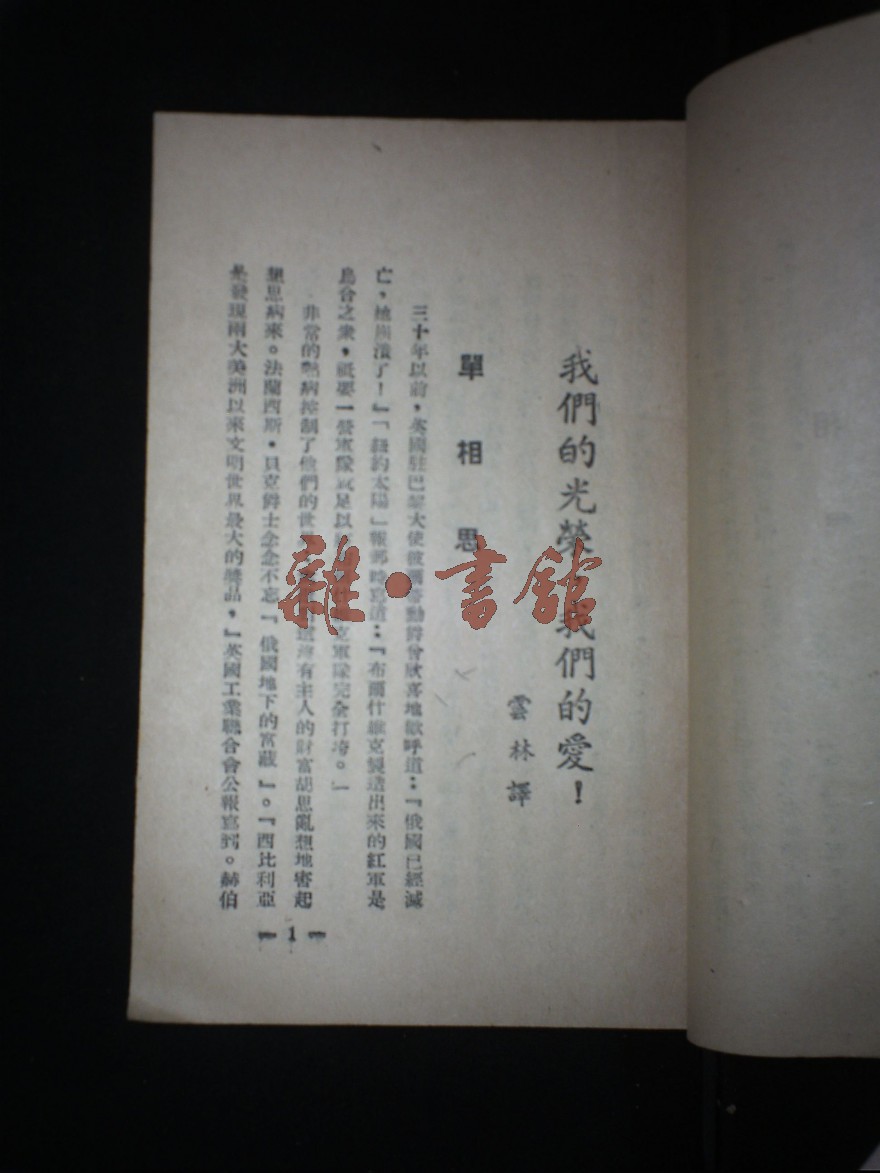 我們的光榮 我們的愛！
雲林譯
單相思
三十年以前，英國駐巴黎大使 爵曾欣喜地歡呼道：『俄國已經滅
亡，她崩潰了！』「紐約太陽」報那時寫道：『布爾什維克製造出來的紅軍是
烏合之衆，祇要一營軍隊就足以 克軍隊完全打垮。」
非常的熱病控制了他們的世界 有主人的財富胡思亂想地害起
想思病來。法蘭西斯·貝克爵士念念不忘『俄國地下的富藏』。『西比利亞
是發現兩大美洲以來文明世界最大的獎品，』英國工業聯合會公報寫到。赫伯
1
雜·書館